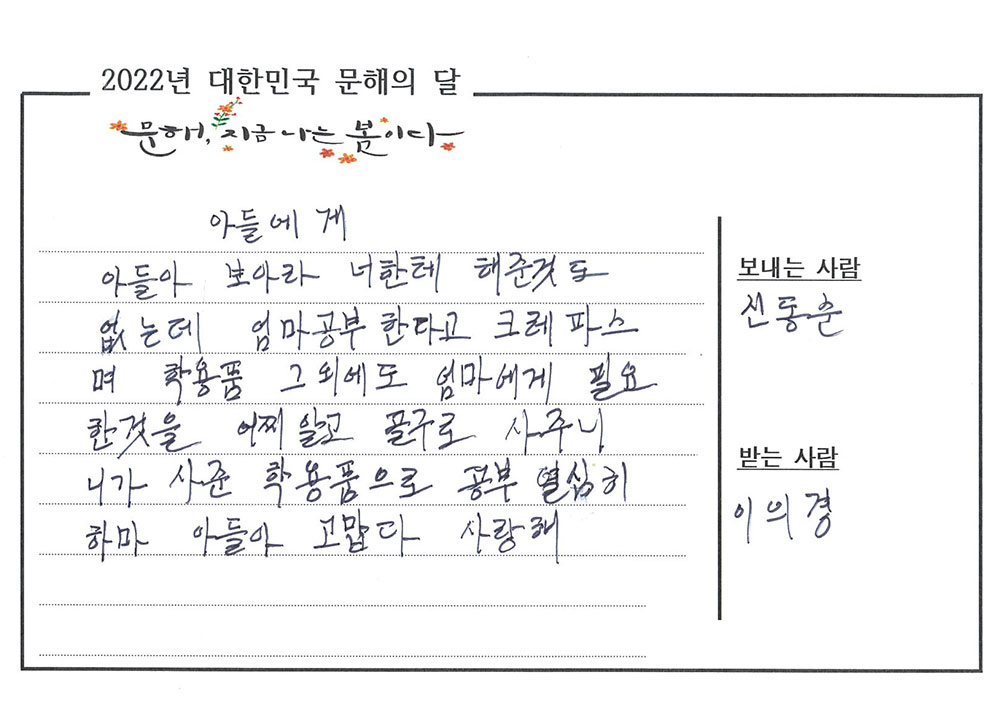 2022년 대한민국 문해의 달
문해, 지금 나는 봄이다
아들에게
아들아 보아라 너한테 해준것도
없는데 엄마공부한다고 크레파스
며 학용품 그외에도 엄마에게 필요
한것을 어찌알고 골구로 사주니
니가 사준 학용품으로 공부 열심히
하마 아들아 고맙다 사랑해
보내는 사람
신동순
받는 사람
이의경